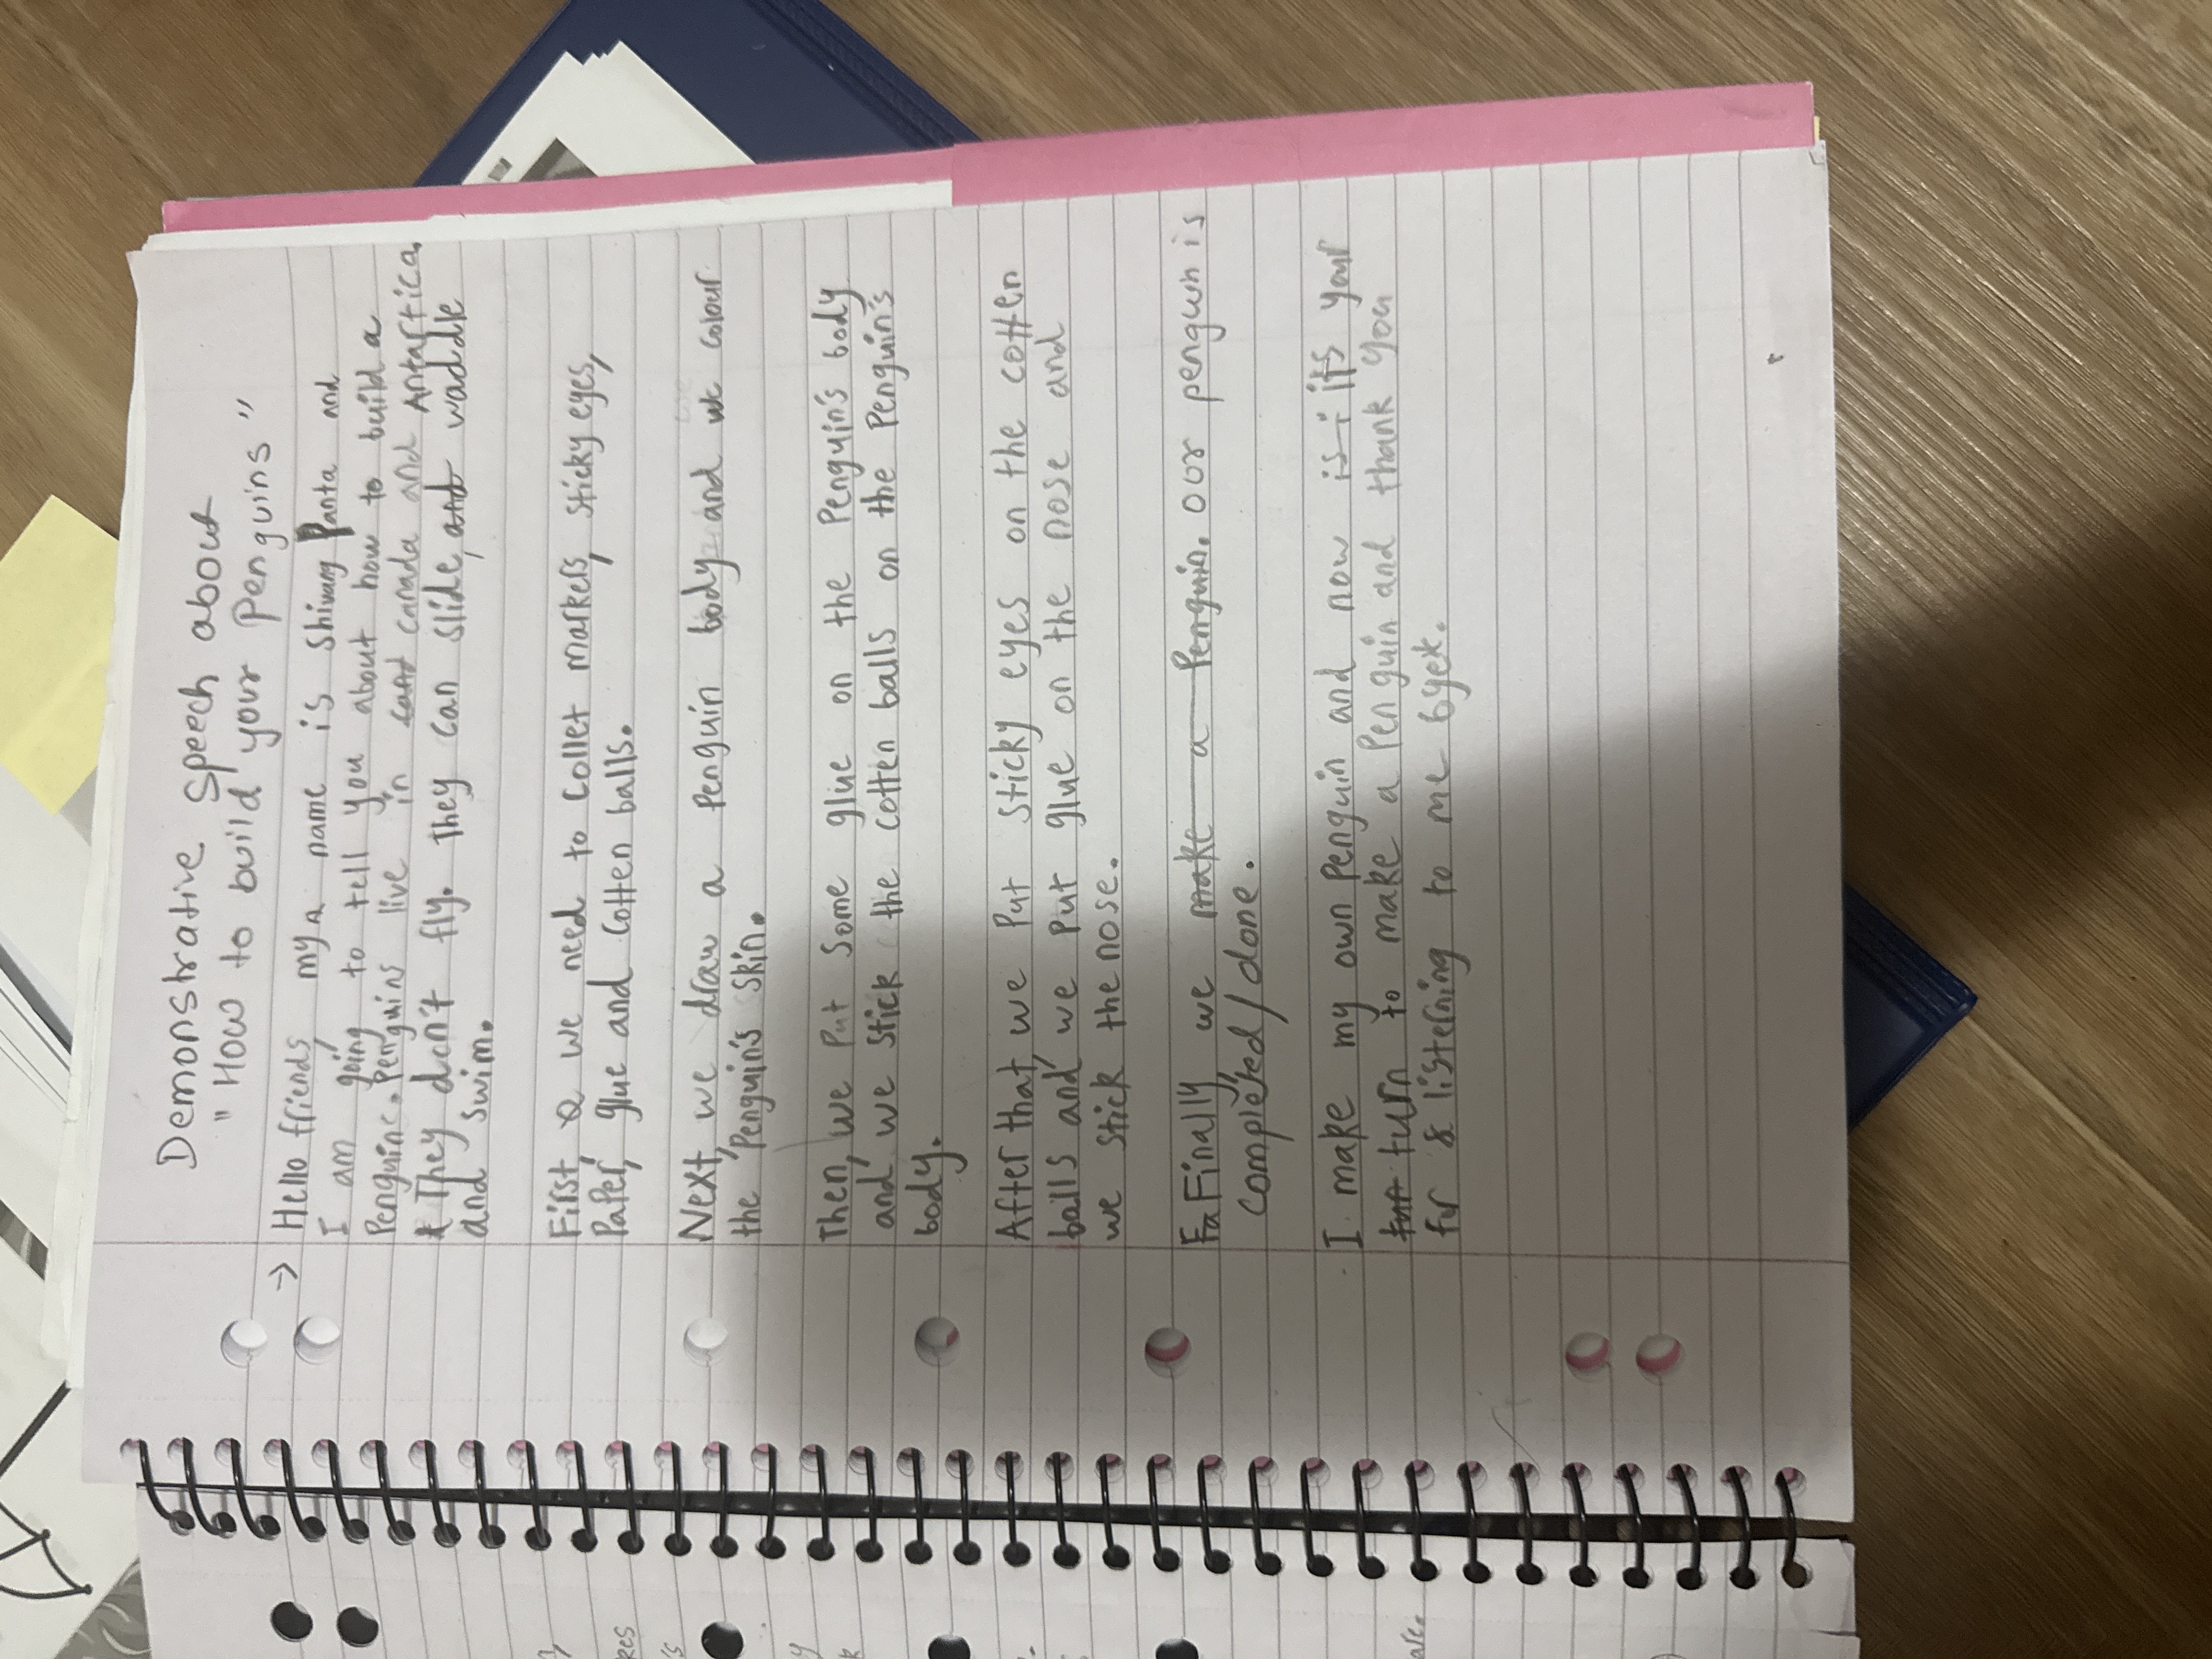 Demonstrative Speech about
"How to build your penguins"
→ Hello friends my a name is Shivang Panta and
I am going to tell you about how to build a
Penguine. Penguins live in cand canada and Antartica.
* They don't fly. They can slide, and waddle
and swim.
First, a we need to collet markers, sticky eyes,
Paper, glue and cotten balls.
Next, we draw a Penguin body and we colour
the Penguin's skin.
Then, we Put some glue on the Penguin's body
and, we stick the cotten balls on the Penguin's
body.
After that we Put sticky eyes on the cotten
balls and, we put glue on the nose and
we stick the nose.
Fa Finally, we make a Penguin. our penguin is
completed/done.
I make my own Penguin and now is i its your
tun turn to make a Penguin and thank you
for & listerning to me
are.